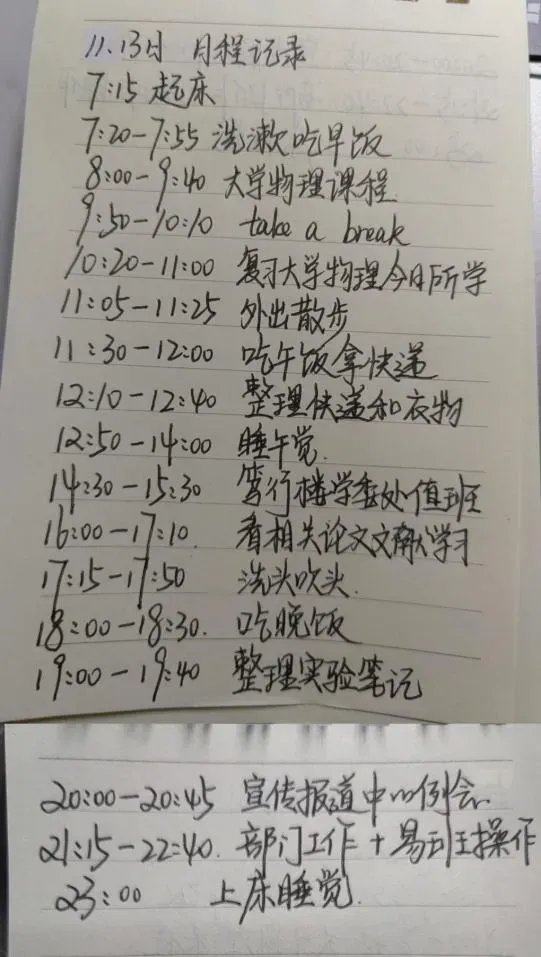 11.13日 日程记录
7:15 起床
7:20-7:55 洗漱吃早饭
8:00-9:40 大学物理课程
9:50-10:10 take a break
10:20-11:00 复习大学物理今日所学
11:05-11:25 外出散步
11:30-12:00 吃午饭拿快递
12:10-12:40 整理快递和衣物
12:50-14:00 睡午觉.
14:30-15:30 笃行楼学委处值班
16:00-17:10. 看相关论文文献学习
17:15-17:50 洗头吹头.
18:00-18:30. 吃晚饭
19:00-19:40 整理实验笔记
20:00-20:45 宣传报道中心例会.
21:15-22:40. 部门工作+易班操作
23:00 上床睡觉.